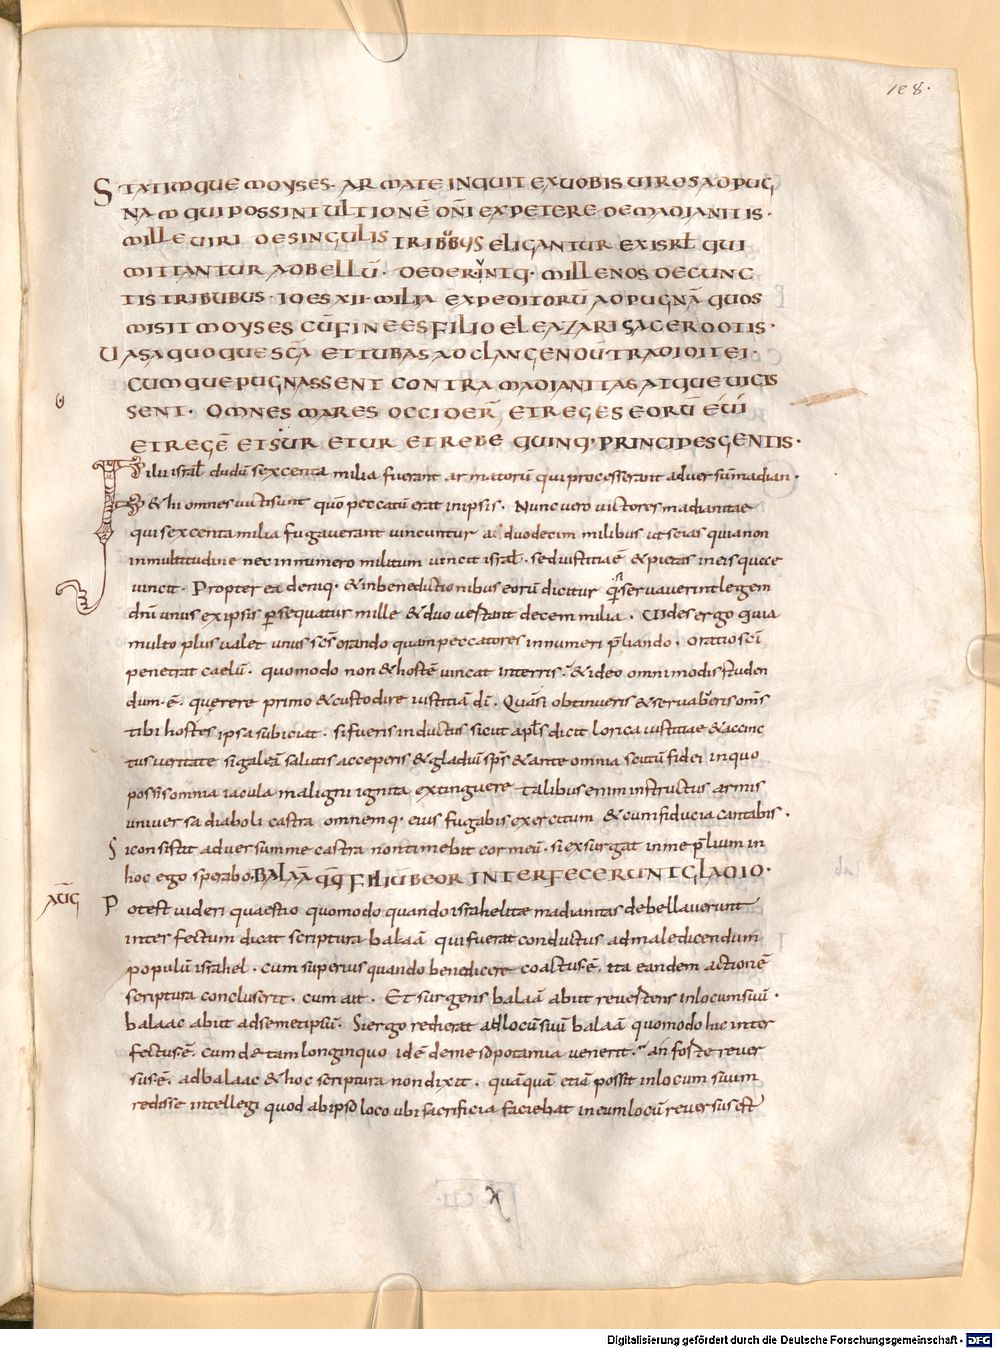 128.
STATIMQUE MOYSES. ARMATE INQUIT EX UOBIS UIROS AD PUG
NAM QUI POSSINT ULTIONĒ DÑI EXPETERE DE MADIANITIS.
MILLE UIRI DE SINGULIS TRIBUBUS ELIGANTUR EX ISRL QUI
MITTANTUR AD BELLŪ. DEDERUNTQ. MILLENOS DE CUNC
TIS TRIBUBUS. ID ES XII. MILIA EXPEDITORŪ AD PUGNĀ QUOS
MISIT MOYSES CŪ FINEES FILIO ELEAZARI SACERDOTIS.
UASA QUOQUE SCĀ ET TUBAS AD CLANGENDŪ TRADIDIT EI.
CUMQUE PUGNASSENT CONTRA MADIANITAS ATQUE UICIS
SENT. OMNES MARES OCCIDER̄ ET REGES EORŪ EUI
ET REGĒ ET SUR ET UR ET REBE QUINQ. PRINCIPES GENTIS.
Filii israł dudū sexcenta milia fuerant armatorū qui processerant adversū madian.
& hi omnes victi sunt quō peccatū erat in ipsis. Nunc vero victores madianitae
qui sexcenta milia fugaverant vincuntur a duodecim milibus ut scias quia non
in multitudine nec in numero militum vincit israł. sed iustitia ē & pietas in eis quae
vincit. Propterea deniq. & in benedictionibus eorū dicitur q̄ si servaverint legem
dñi unus ex ipsis p̄sequatur mille & duo vertant decem milia. Vides ergo quia
multo plus valet unus scs̄ orando quam peccatores innumeri p̄liando. oratio scī
penetrat caelū. quomodo non & hostē vincat in terris. & ideo omnimodis studen
dum. ē. querere primo & custodire iustitiā dī. Quā si obtinueris & servaberis om̄s
tibi hostes ipsa subiciat. si fueris indutus sicut apłs dicit lorica iustitiae & accinc
tus veritate si galeā salutis acceperis & gladiū sp̄s & ante omnia scutū fidei in quo
possis omnia iacula maligni ignita extinguere talibus enim instructus armis
universa diaboli castra omnemq. eius fugabis exercitum & cum fiducia cantabis.
Si consistat adversum me castra non timebit cor meū. si exsurgat in me p̄lium in
hoc ego sperabo. BALAĀ QQ FILIŪ BEOR INTERFECERUNT GLADIO.
AUG̅
Potest videri quaestio quomodo quando israhelitae madianitas debellaverunt
interfectum dicat scriptura balaā qui fuerat conductus ad maledicendum
populū israhel. cum superius quando benedicere coactus. ē. ita eandem actionē
scriptura concluserit. cum ait. Et surgens balaā abiit revertens in locum suū.
balaac abiit ad semetipsū. Si ergo redierat ad locū suū balaā quomodo hic inter
fectus. ē. cum d& tam longinquo idē de mesopotamia venerit. an forte rever
sus. ē. ad balaac & hoc scriptura non dixit. quāquā etiā possit in locum suum
redisse intellegi quod ab ipso loco ubi sacrificia faciebat in eum locū reversus est
Digitalisierung gefördert durch die Deutsche Forschungsgemeinschaft - DFG